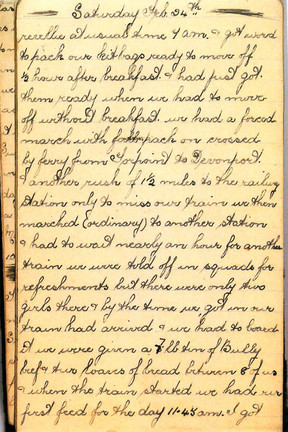 Saturday Feb 24th
reveille at usual time 4 am. & got word
to pack our kitbags ready to move off
½ hour after breakfast. & had just got
them ready when we had to move
off without breakfast. we had a forced
march with pack on crossed
by ferry from Torpoint to Devonport.
& another rush of 1½ miles to the railway
station only to miss our train we then
marched (ordinary) to another station
& had to wait nearly an hour for another
train we were told off in squads for
refreshments but there were only two
girls there & by the time we got in our
train had arrived & we had to board
it we were given a 7 lb tin of Bully
beef & two loaves of bread between 8 of us
& when the train started we had our
first feed for the day 11.45 am. I got